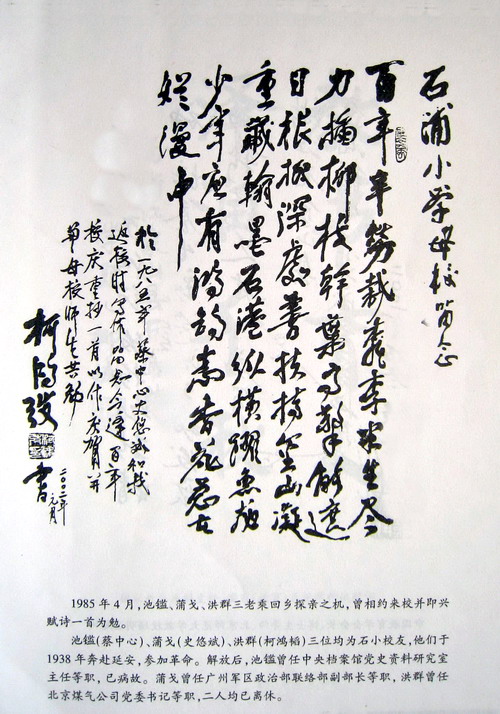 石浦小学母校留念
百年辛劳栽桃李半生尽
力插柳枝干叶高擎能遮
日根 深處善扶持金山凝
重藏翰墨石港纵横耀鱼
少年应有鸿鹄志香花 在
烂漫中
於一九八五年蔡中心史悠诚和我
返校时写作留念今逢百年
校庆重抄一首以作庆贺并
与母校师生共勉
柯鸿 書
二〇〇二年元月
1985 年 4 月,池镒、蒲戈、洪群三老乘回乡探亲之机,曾相约来校并即兴
赋诗一首为勉。
池镒(蔡中心)、蒲戈(史悠斌)、洪群(柯鸿韬)三位均为石小校友,他们于
1938 年奔赴延安,参加革命。解放后,池镒曾任中央档案馆党史资料研究室
主任等职,已病故。蒲戈曾任广州军区政治部联络部副部长等职,洪群曾任
北京煤气公司党委书记等职,二人均已离休。